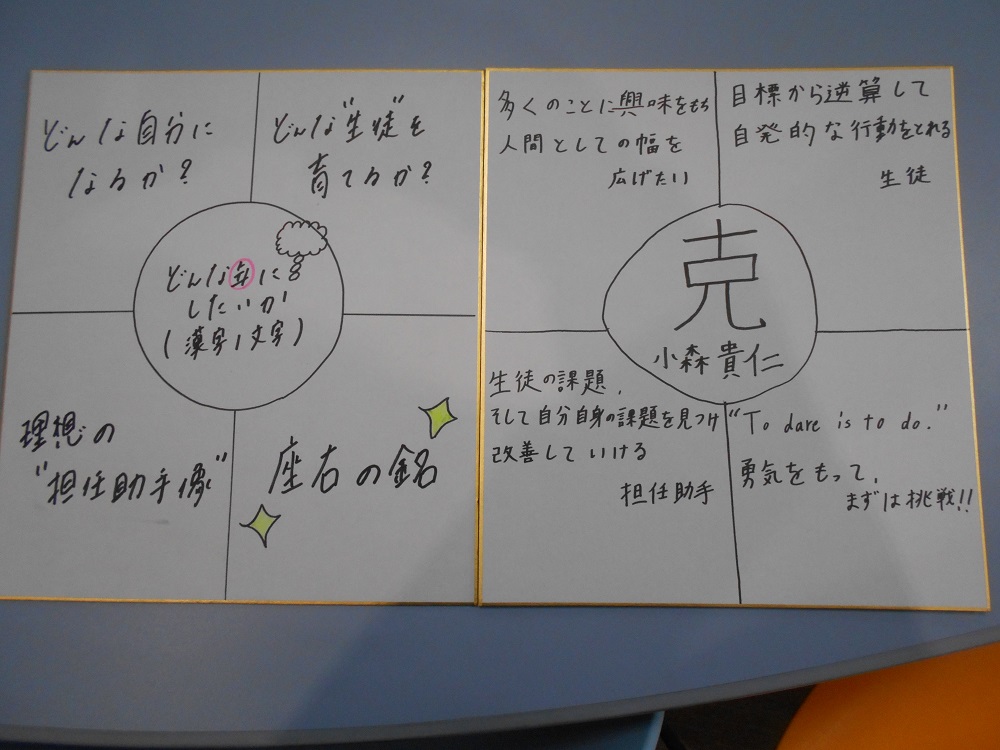 どんな自分に
なるか?
どんな"生徒"を
育てるか?
どんな年に
したいか
(漢字1文字)
理想の
"担任助手像"
座右の銘
多くのことに興味をもち
人間としての幅を
広げたい
目標から逆算して
自発的な行動をとれる
生徒
克
小森貴仁
生徒の課題、
そして自分自身の課題を見つけ
改善していける
担任助手
"To dare is to do."
勇気をもって、
まずは挑戦!!